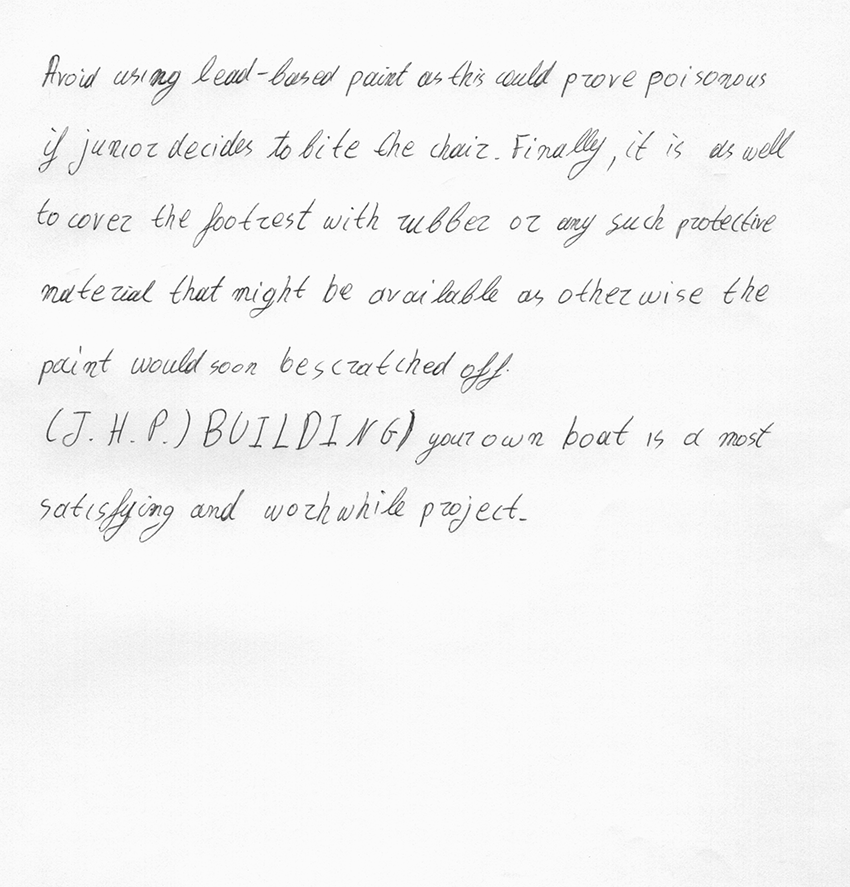 Avoid using lead-based paint as this could prove poisonous
if junior decides to bite the chair. Finally, it is as well
to cover the footrest with rubber or any such protective
material that might be available as otherwise the
paint would soon be scratched off.
(J. H. P.) BUILDING) your own boat is a most
satisfying and worhwhile project.